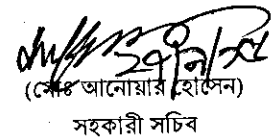 (মোঃ আনোয়ার হোসেন)
সহকারী সচিব